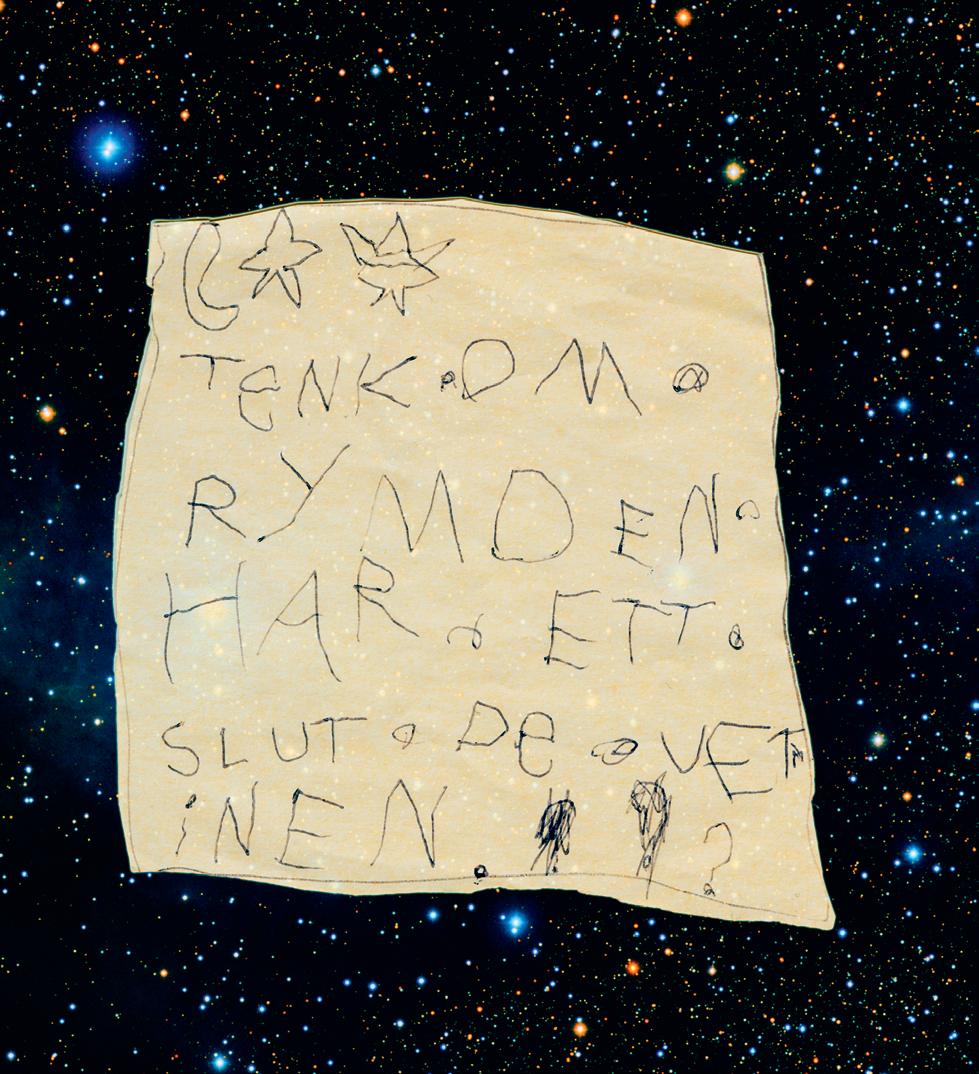 TENK.OM.
RYMDEN.
HAR.ETT.
SLUT.DE.VET
iNEN.!!?